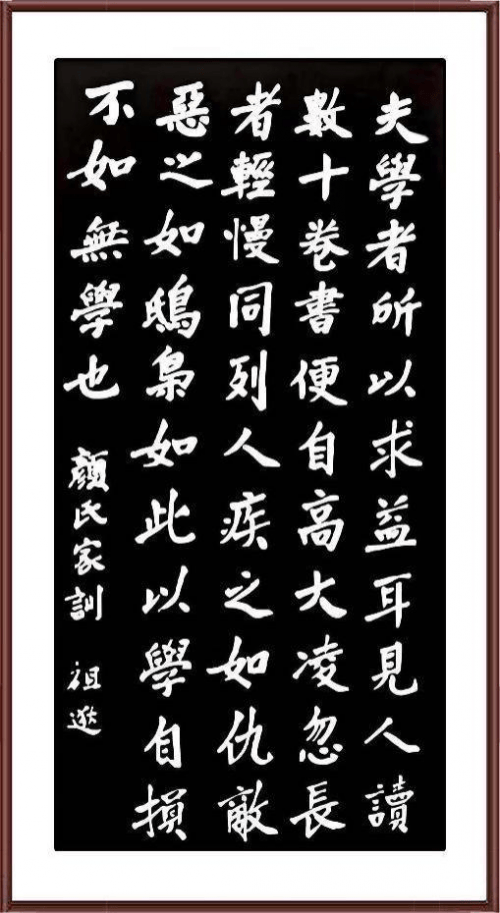 夫學者所以求益耳見人讀
數十卷書便自高大凌忽長
者輕慢同列人疾之如仇敵
惡之如鴟梟如此以學自損
不如無學也
顏氏家訓 祖遜